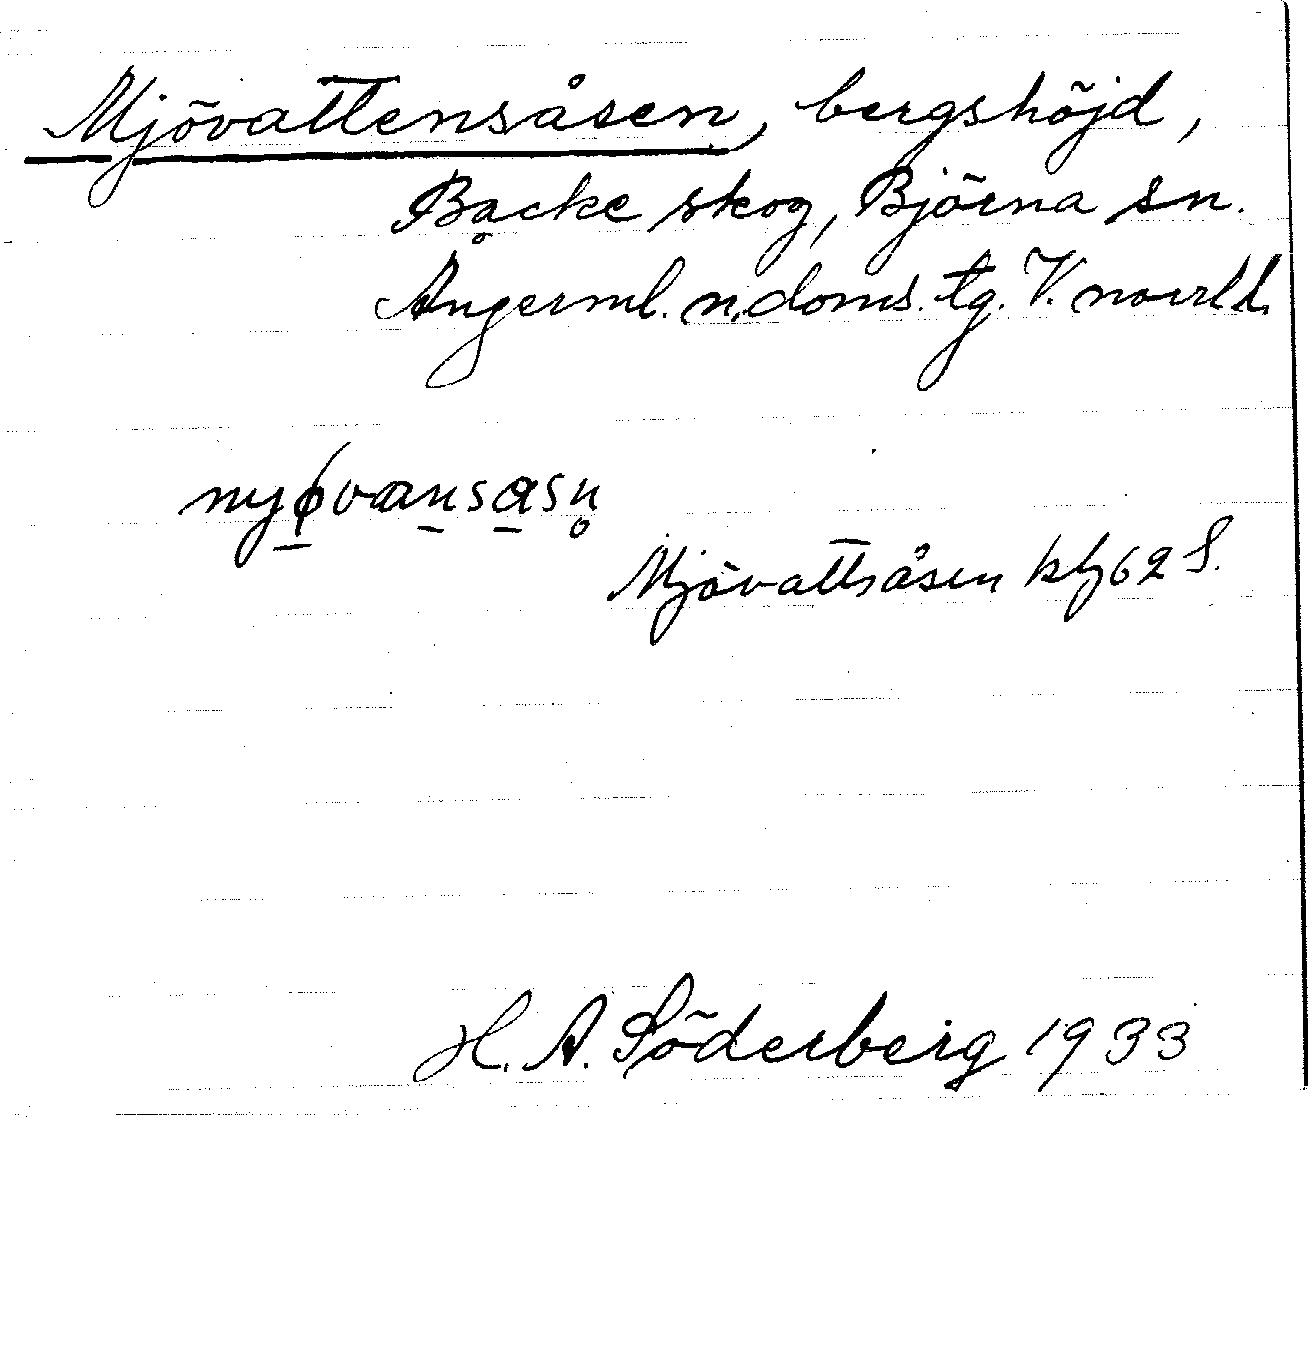 Mjövattensåsen, bergshöjd,
Backe skog, Björna sn.
Ångerml. n. doms. tg. V. norrl l.
nyø̱van̲sa̲sn̥
Mjövattsåsen kbg 62 S.
H. A. Söderberg 1933